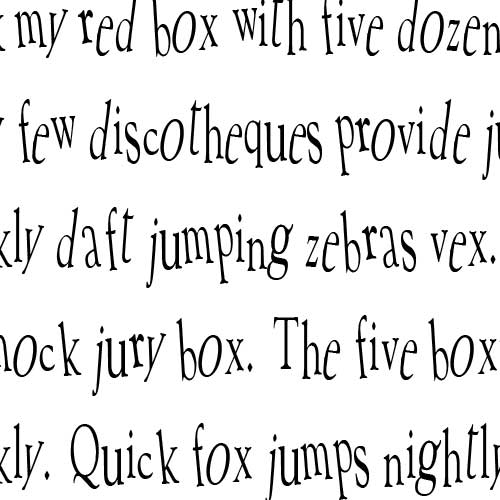 my red box with five dozen
few discotheques provide
daft jumping zebras vex.
ock jury box. The five box
kly. Quick fox jumps nightly